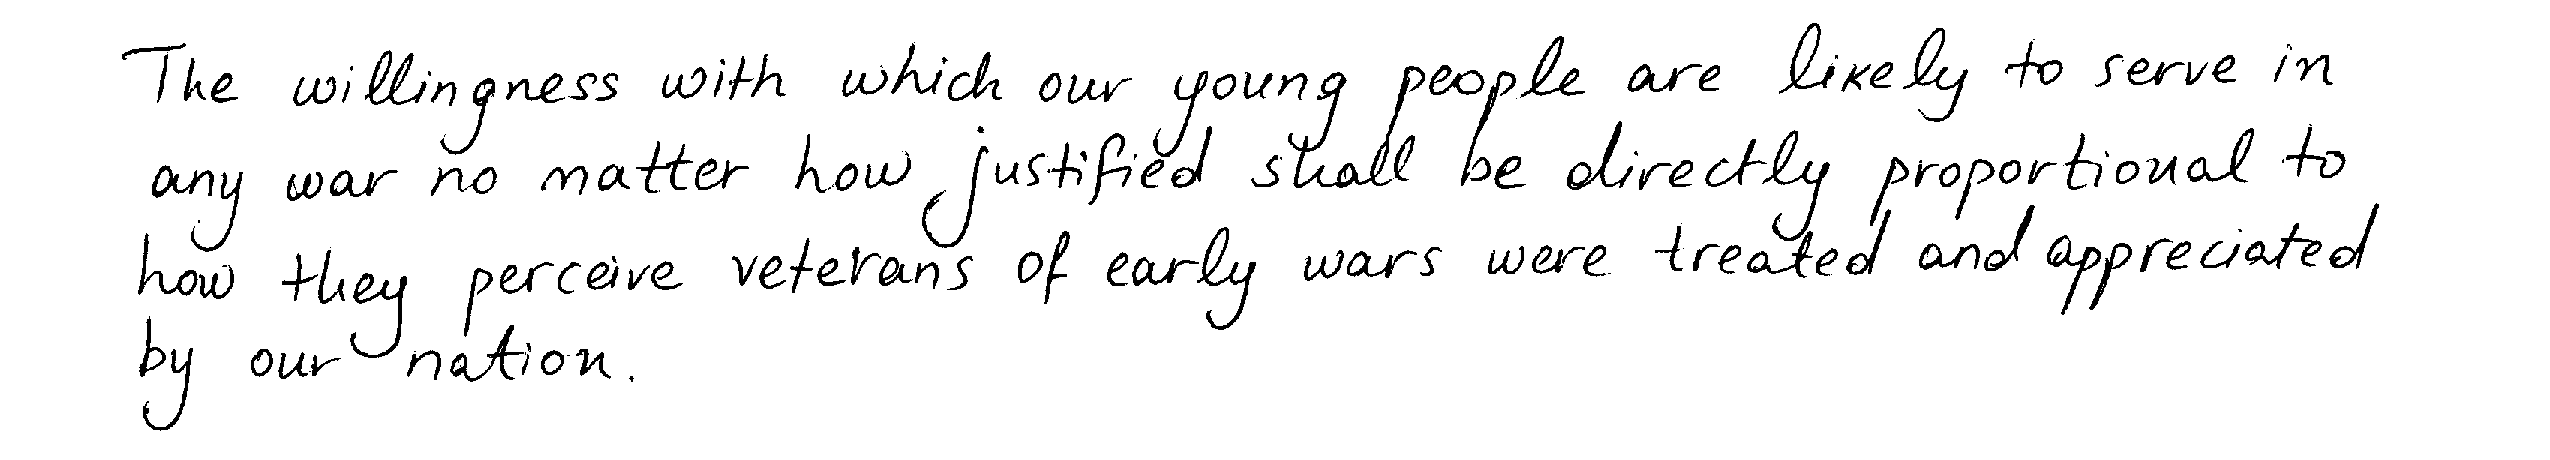 The willingness with which our young people are likely to serve in
any war no matter how justified shall be directly proportional to
how they perceive veterans of early wars were treated and appreciated
by our nation.